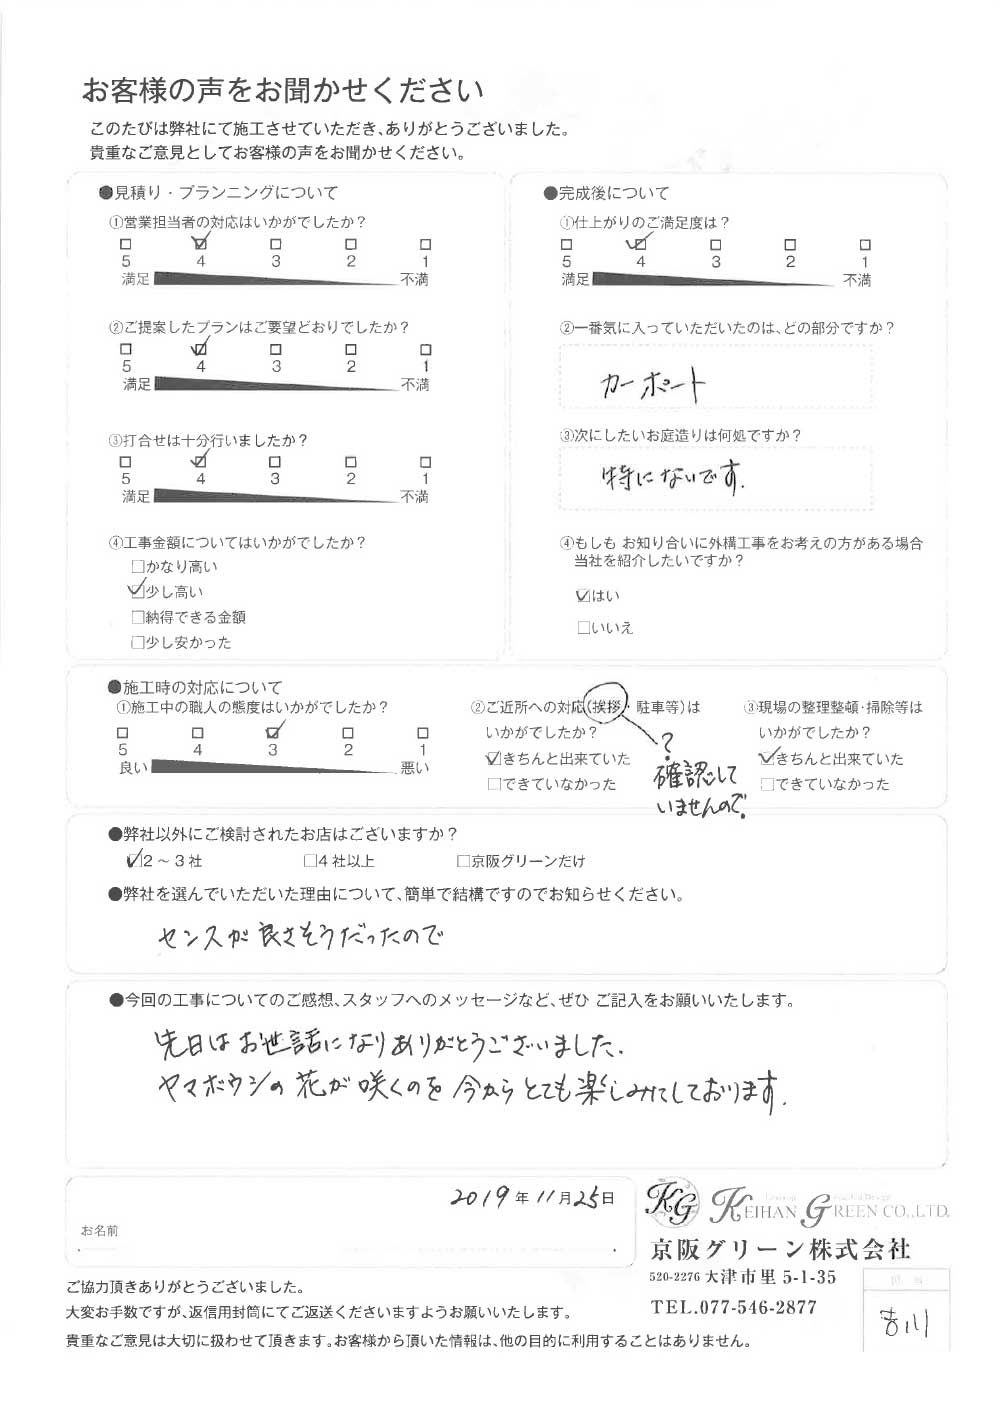 お客様の声をお聞かせください
このたびは弊社にて施工させていただき、ありがとうございました。
貴重なご意見としてお客様の声をお聞かせください。
●見積り・プランニングについて
①営業担当者の対応はいかがでしたか？
□ ☑ □ □ □
5 4 3 2 1
満足 不満
②ご提案したプランはご要望どおりでしたか？
□ ☑ □ □ □
5 4 3 2 1
満足 不満
③打合せは十分行いましたか？
□ ☑ □ □ □
5 4 3 2 1
満足 不満
④工事金額についてはいかがでしたか？
□かなり高い
☑少し高い
□納得できる金額
□少し安かった
●完成後について
①仕上がりのご満足度は？
□ ☑ □ □ □
5 4 3 2 1
満足 不満
②一番気に入っていただいたのは、どの部分ですか？
カーポート
③次にしたいお庭造りは何処ですか？
特にないです.
④もしも お知り合いに外構工事をお考えの方がある場合
当社を紹介したいですか？
☑はい
□いいえ
●施工時の対応について
①施工中の職人の態度はいかがでしたか？
□ □ ☑ □ □
5 4 3 2 1
良い 悪い
②ご近所への対応(挨拶・駐車等)は
いかがでしたか？
☑きちんと出来ていた
□できていなかった
?
確認して
いませんので.
③現場の整理整頓・掃除等は
いかがでしたか？
☑きちんと出来ていた
□できていなかった
●弊社以外にご検討されたお店はございますか？
☑2～3社 □4社以上 □京阪グリーンだけ
●弊社を選んでいただいた理由について、簡単で結構ですのでお知らせください。
センスが良さそうだったので
●今回の工事についてのご感想、スタッフへのメッセージなど、ぜひ ご記入をお願いいたします。
先日はお世話になりありがとうございました.
ヤマボウシの花が咲くのを今からとても楽しみにしております.
2019年11月25日
お名前
KG KEIHAN GREEN CO.,LTD.
京阪グリーン株式会社
520-2276 大津市里 5-1-35
TEL.077-546-2877
担当
吉川
ご協力頂きありがとうございました。
大変お手数ですが、返信用封筒にてご返送くださいますようお願いいたします。
貴重なご意見は大切に扱わせて頂きます。お客様から頂いた情報は、他の目的に利用することはありません。